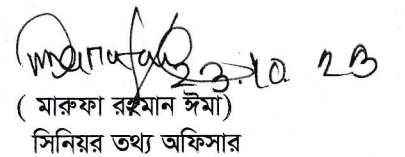 23.10.23
( মারুফা রহমান ঈমা)
সিনিয়র তথ্য অফিসার